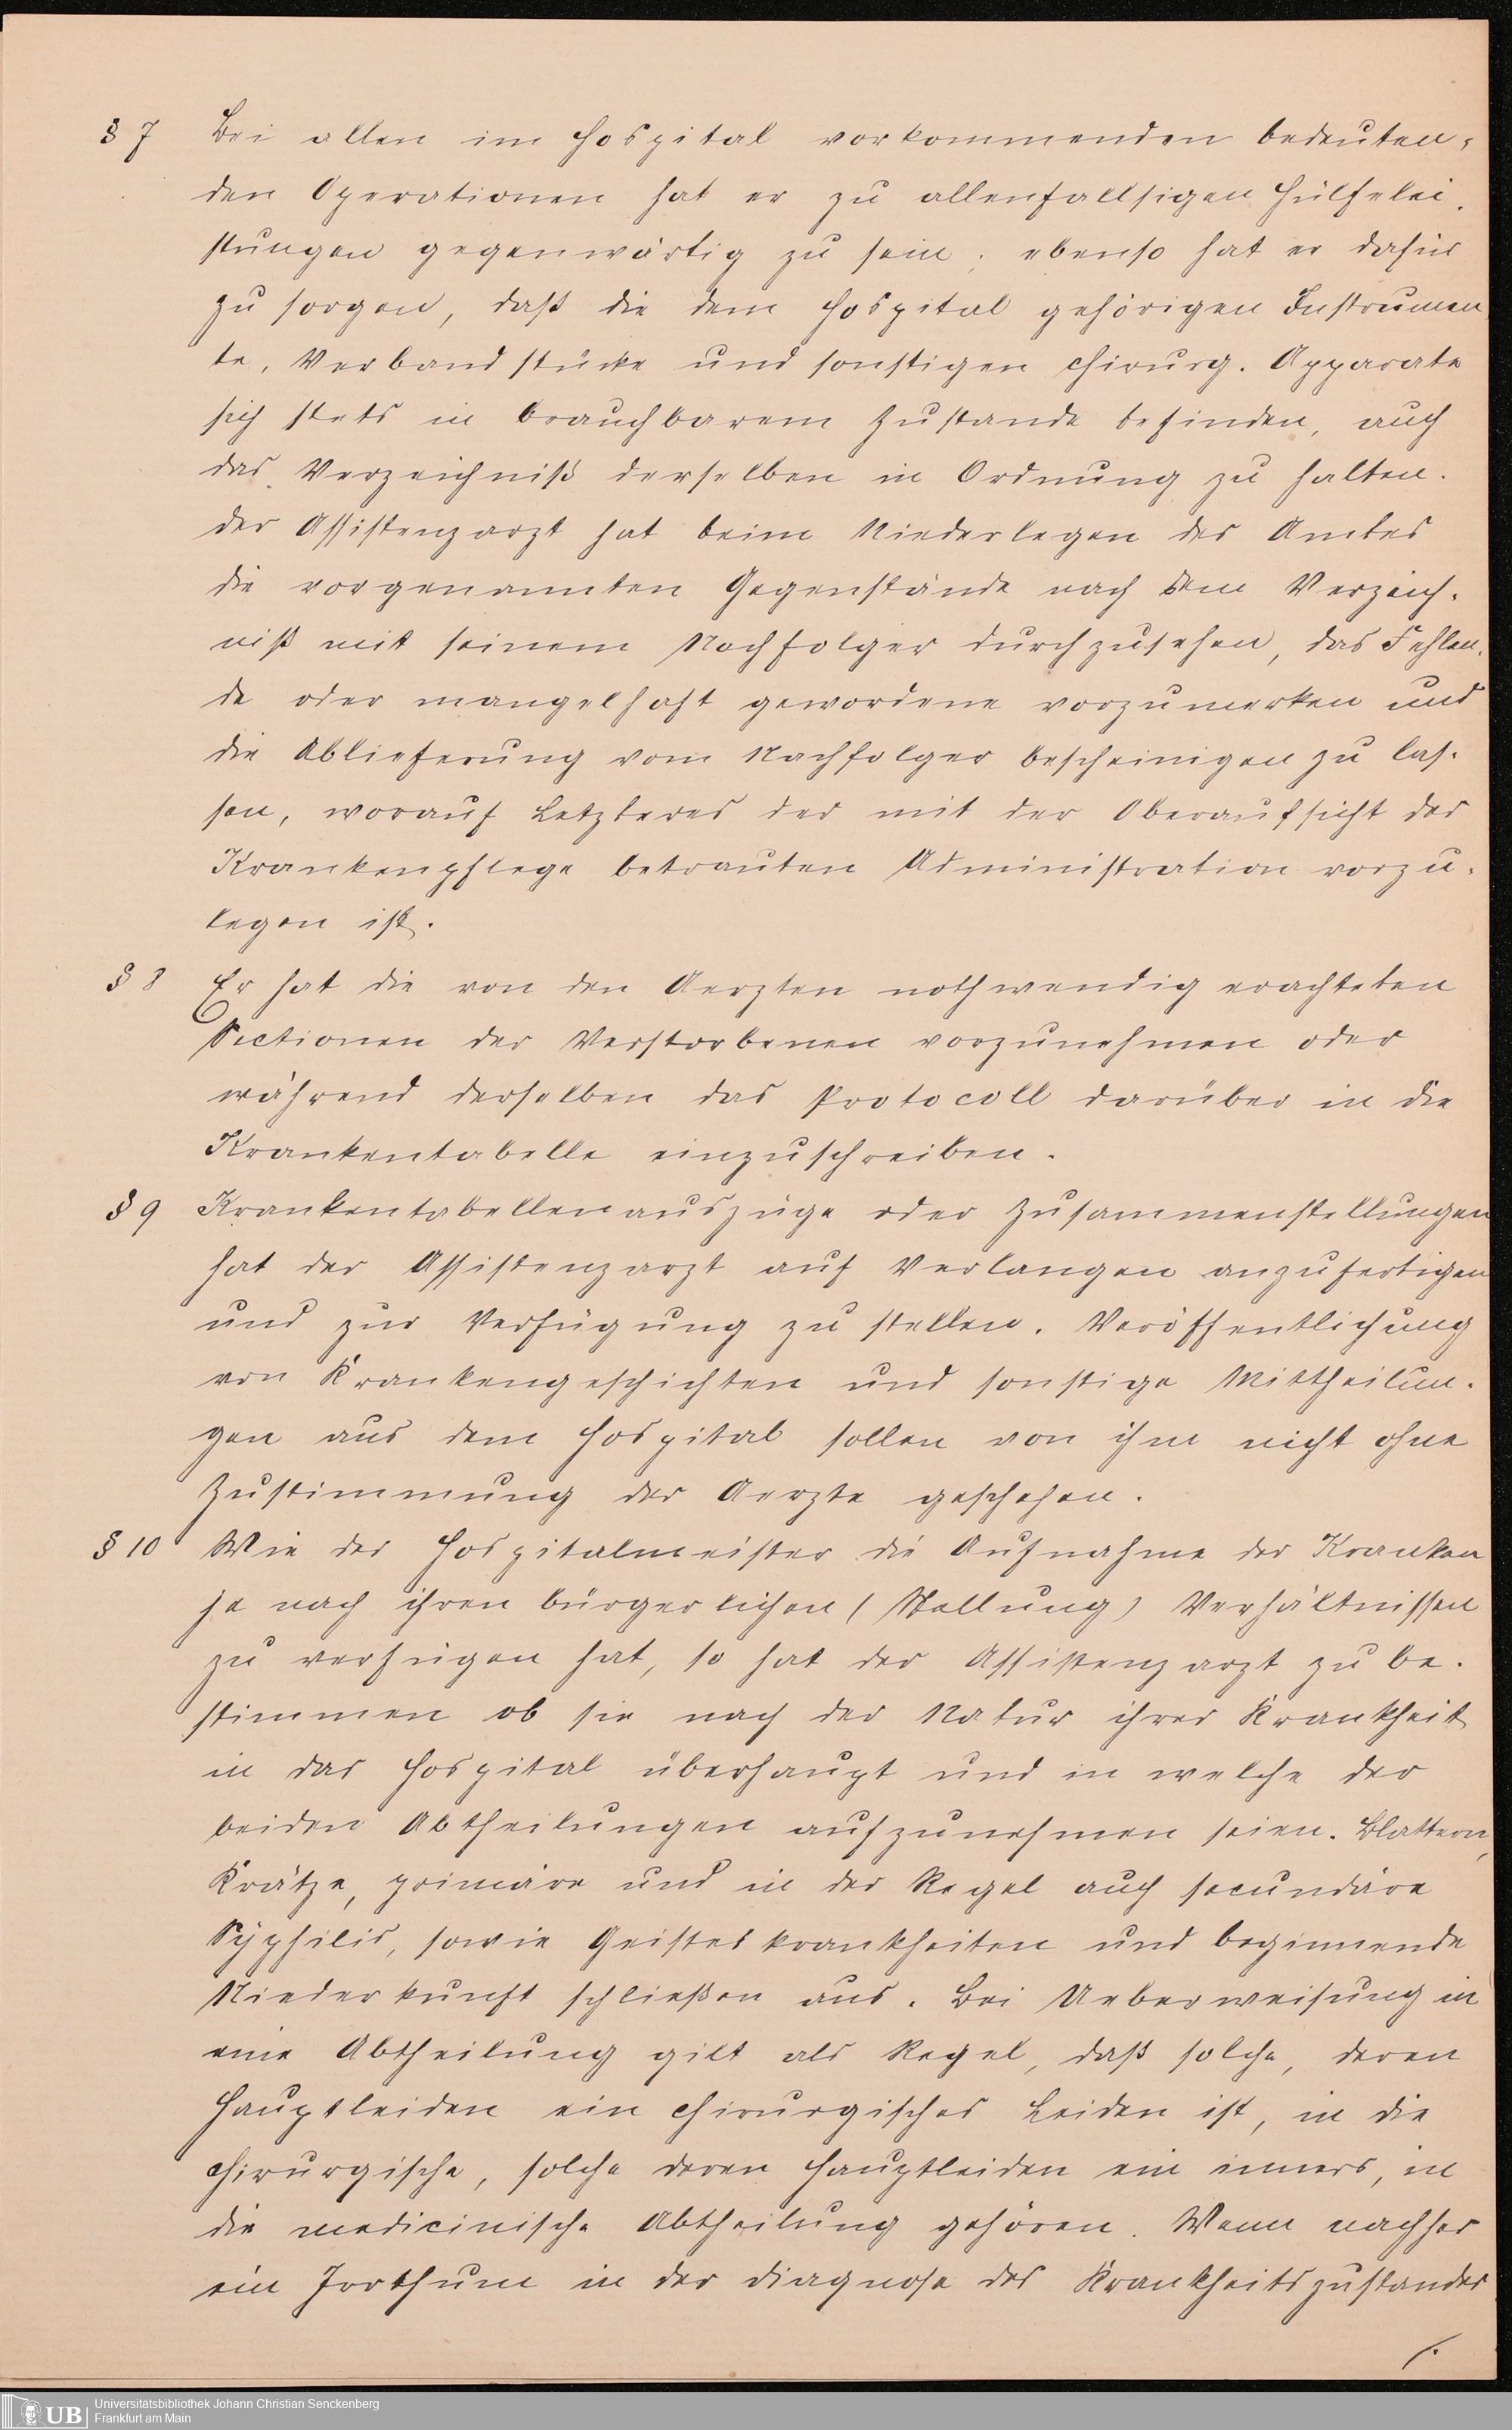 § 7 Bei allen im Hospital vorkommenden bedeuten-
den Operationen hat er zu allenfallsigen Hülfelei-
stungen gegenwärtig zu sein; ebenso hat er dafür
zu sorgen, daß die dem Hospital gehörigen Instrumen-
te, Verbandstücke und sonstigen chirurg. Apparate
sich stets in brauchbarem Zustande befinden, auch
das Verzeichniß derselben in Ordnung zu halten.
der Assistenzarzt hat beim Niederlegen des Amtes
die vorgenannten Gegenstände nach dem Verzeich-
niß mit seinem Nachfolger durchzusehen, das Fehlen-
de oder mangelhaft gewordene vorzumerken und
die Ablieferung vom Nachfolger bescheinigen zu las-
sen, worauf Letzteres der mit der Oberaufsicht der
Krankenpflege betrauten Administration vorzu-
legen ist.
§ 8 Er hat die von den Aerzten nothwendig erachteten
Sectionen der Verstorbenen vorzunehmen oder
während derselben das Protocoll darüber in die
Krankentabelle einzuschreiben.
§ 9 Krankentabellenauszüge oder Zusammenstellungen
hat der Assistenzarzt auf Verlangen anzufertigen
und zur Verfügung zu stellen. Veröffentlichung
von Krankengeschichten und sonstige Mittheilun-
gen aus dem Hospital sollen von ihm nicht ohne
Zustimmung der Aerzte geschehen.
§ 10 Wie der Hospitalmeister die Aufnahme der Kranken
je nach ihren bürgerlichen (Stellung) Verhältnissen
zu verfügen hat, so hat der Assistenzarzt zu be-
stimmen ob sie nach der Natur ihrer Krankheit
in das Hospital überhaupt und in welche der
beiden Abtheilungen aufzunehmen seien. Blattern,
Krätze, primäre und in der Regel auch secundäre
Sÿphilis, sowie Geisteskrankheiten und beginnende
Niederkunft schließen aus. Bei Ueberweisung in
eine Abtheilung gilt als Regel, daß solche, deren
Hauptleiden ein chirurgisches Leiden ist, in die
chirurgische, solche deren Hauptleiden ein inners, in
die medicinische Abtheilung gehören. Wenn nachher
ein Irrthum in der Diagnose des Krankheitszustandes
/.
UB Universitätsbibliothek Johann Christian Senckenberg
Frankfurt am Main